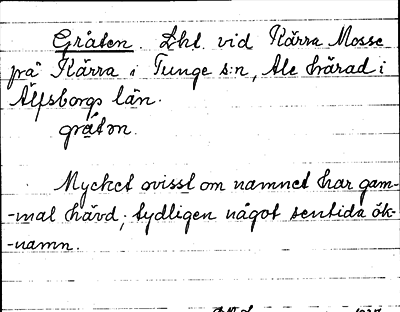 Gråten. Lht. vid Kärra Mosse
på Kärra i Tunge s:n, Ale härad i
Älfsborgs län.
gråtən.
Mycket ovisst om namnet har gam-
-mal hävd; tydligen något sentida ök-
-namn.